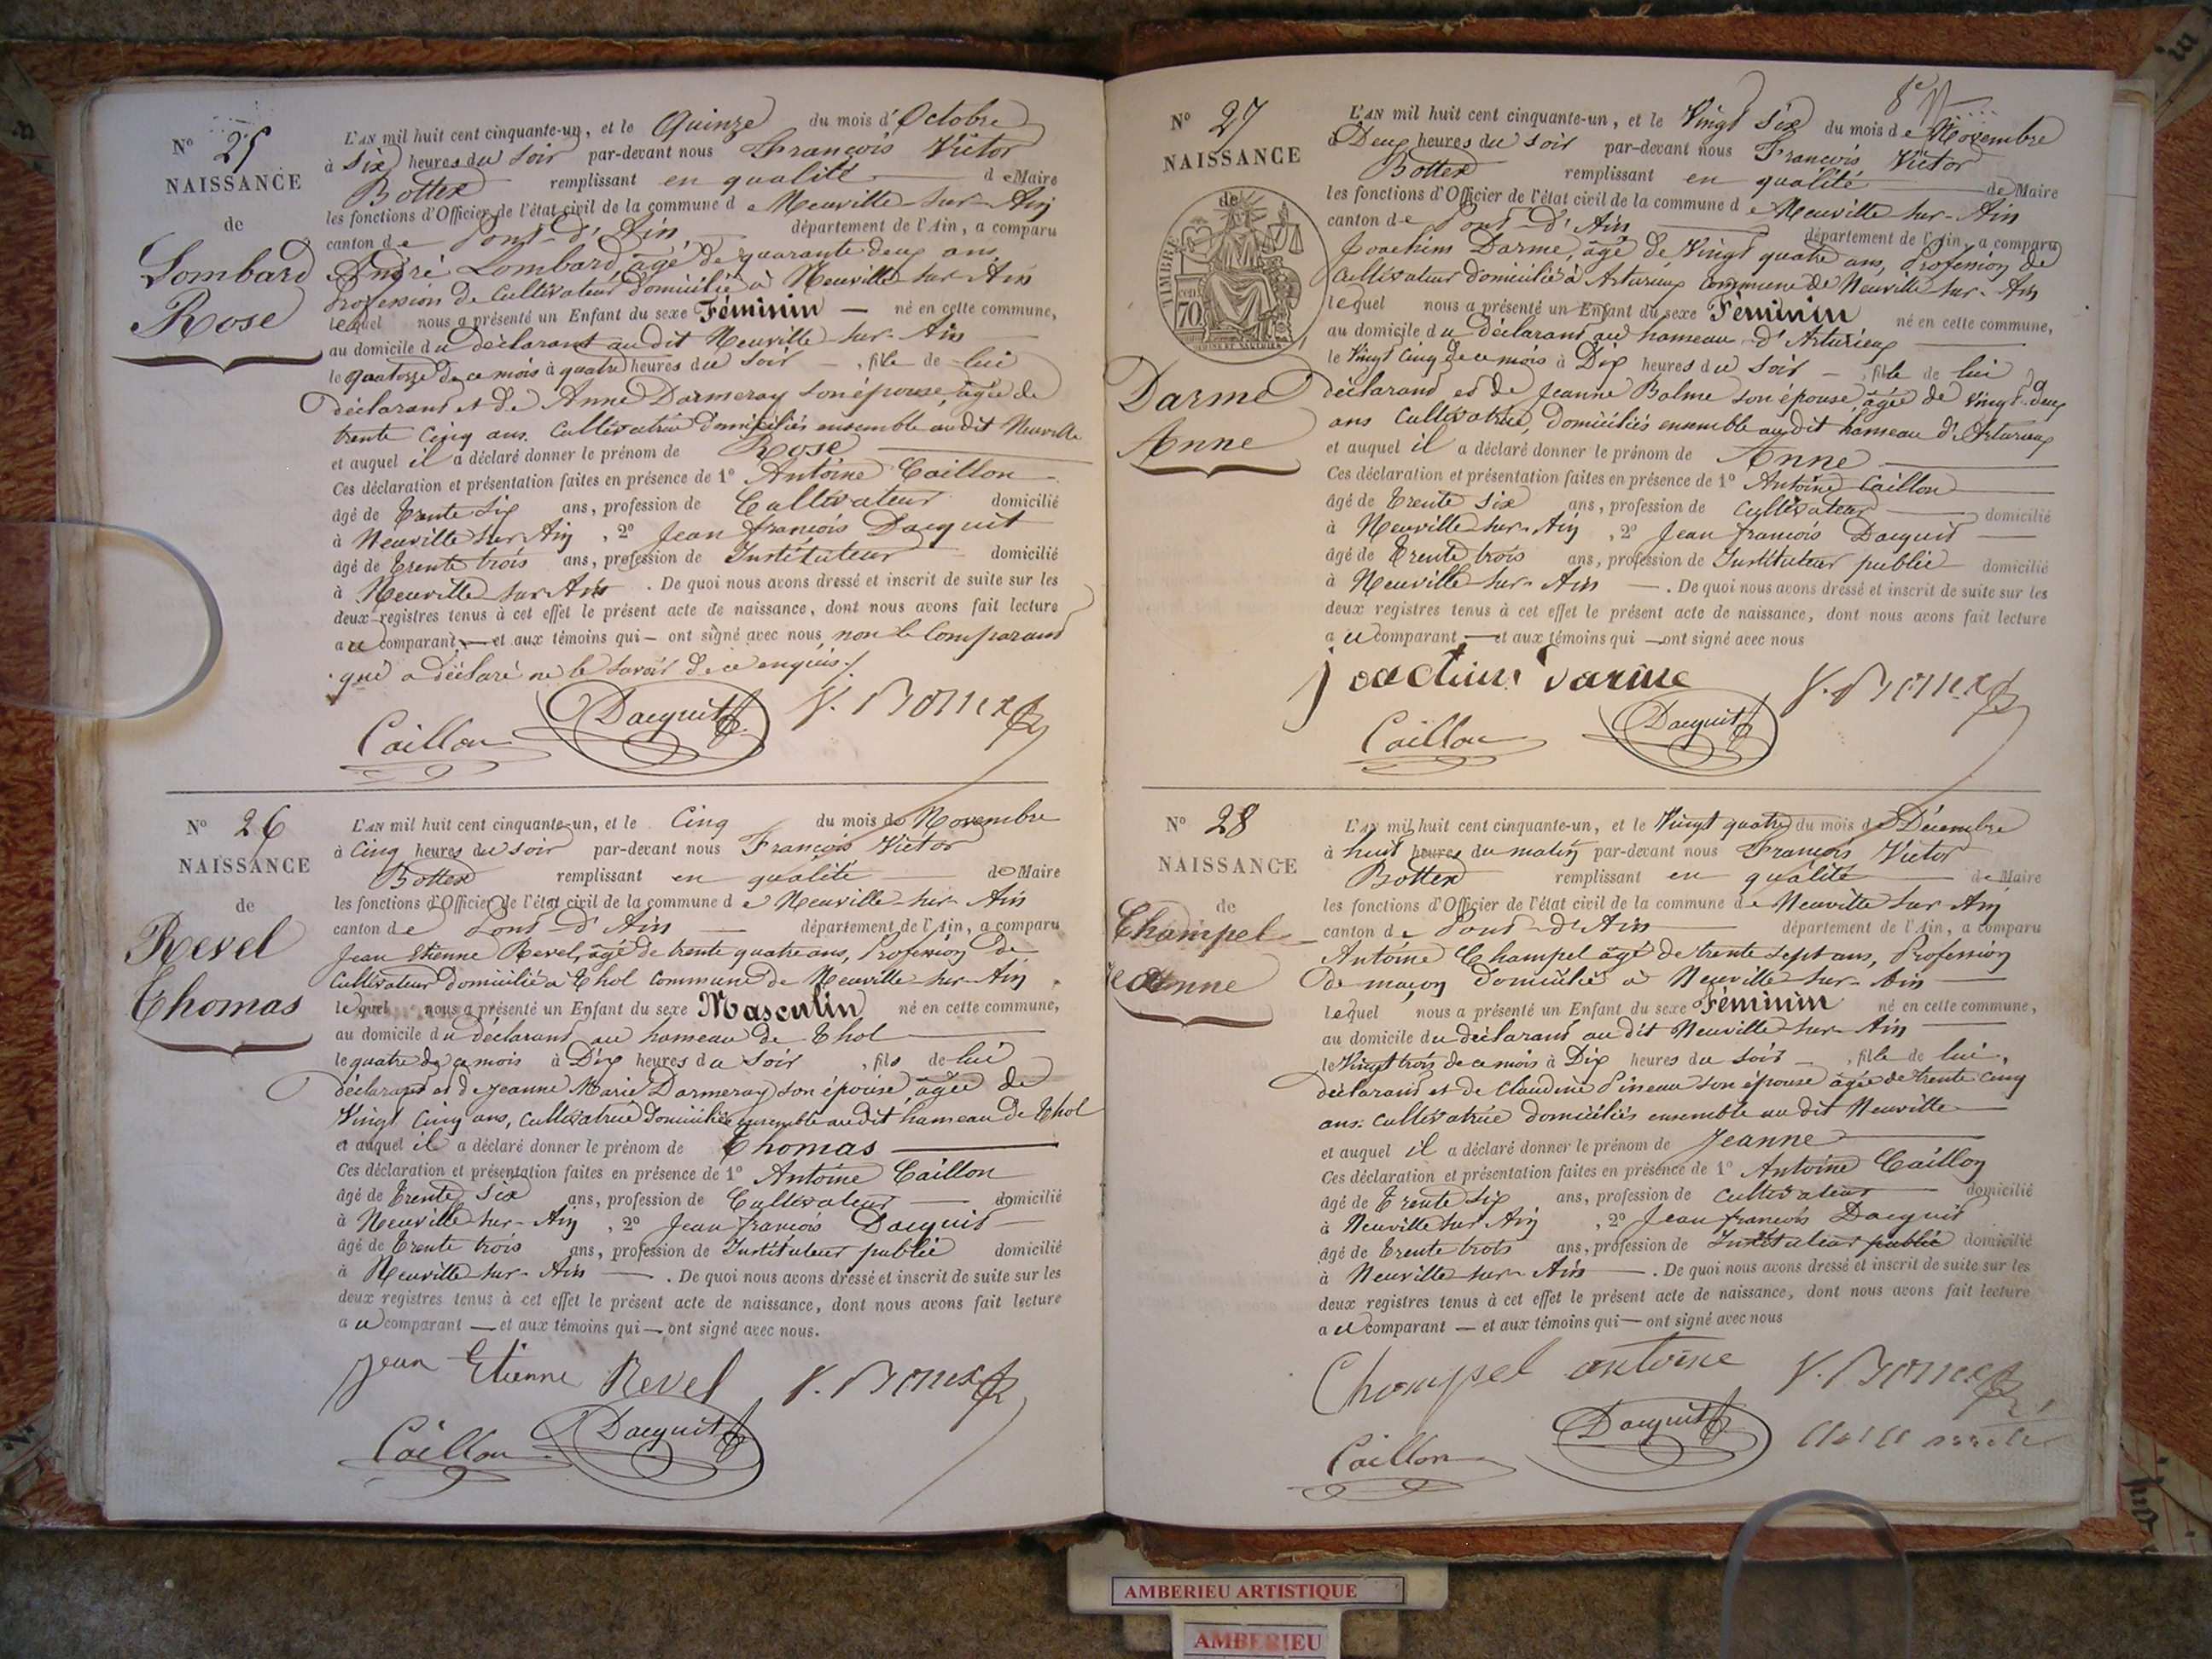 N° 25
NAISSANCE
de
Lombard
Rose
L'AN mil huit cent cinquante-un, et le Quinze du mois d'Octobre
à Six heures du Soir par-devant nous François Victor
Bottex remplissant en qualité de Maire
les fonctions d'Officier de l'état civil de la commune de Neuville sur Ain
canton de Pont-d'Ain département de l'Ain, a comparu
André Lombard âgé de quarante deux ans,
Profession de Cultivateur domicilié à Neuville sur Ain
lequel nous a présenté un Enfant du sexe Féminin né en cette commune,
au domicile du déclarant au dit Neuville sur Ain
le quatorze de ce mois à quatre heures du soir, fille de lui
déclarant et de Anne Darmeray son épouse, âgée de
trente Cinq ans. Cultivatrice domiciliés ensemble au dit Neuville
et auquel il a déclaré donner le prénom de Rose
Ces déclaration et présentation faites en présence de 1° Antoine Caillon
âgé de trente Six ans, profession de Cultivateur domicilié
à Neuville sur Ain, 2° Jean François Dacquit
âgé de trente trois ans, profession de Instituteur domicilié
à Neuville sur Ain. De quoi nous avons dressé et inscrit de suite sur les
deux registres tenus à cet effet le présent acte de naissance, dont nous avons fait lecture
au comparant — et aux témoins qui — ont signé avec nous non le Comparant
qui a déclaré ne le savoir de ce enquis.
Caillon Dacquit V. Bottex
N° 26
NAISSANCE
de
Revel
Thomas
L'AN mil huit cent cinquante-un, et le Cinq du mois de Novembre
à Cinq heures du Soir par-devant nous François Victor
Bottex remplissant en qualité de Maire
les fonctions d'Officier de l'état civil de la commune de Neuville sur Ain
canton de Pont d'Ain département de l'Ain, a comparu
Jean Etienne Revel, âgé de trente quatre ans, Profession de
Cultivateur domicilié à Thol commune de Neuville sur Ain
lequel nous a présenté un Enfant du sexe Masculin né en cette commune,
au domicile du déclarant au hameau de Thol
le quatre de ce mois à Dix heures du Soir, fils de lui
déclarant et de Jeanne Marie Darmeray son épouse, âgée de
Vingt Cinq ans, Cultivatrice domiciliés ensemble au dit hameau de Thol
et auquel il a déclaré donner le prénom de Thomas
Ces déclaration et présentation faites en présence de 1° Antoine Caillon
âgé de trente Six ans, profession de Cultivateur domicilié
à Neuville sur Ain, 2° Jean françois Dacquit
âgé de trente trois ans, profession de Instituteur public domicilié
à Neuville sur Ain. De quoi nous avons dressé et inscrit de suite sur les
deux registres tenus à cet effet le présent acte de naissance, dont nous avons fait lecture
au comparant — et aux témoins qui — ont signé avec nous.
Jean Etienne Revel V. Bottex
Caillon Dacquit
N° 27
NAISSANCE
de
TIMBRE
70
Darme
Anne
L'AN mil huit cent cinquante-un, et le Vingt Six du mois de Novembre
à Deux heures du soir par-devant nous François Victor
Bottex remplissant en qualité de Maire
les fonctions d'Officier de l'état civil de la commune de Neuville sur Ain
canton de Pont-d'Ain département de l'Ain, a comparu
Joachim Darme, âgé de Vingt quatre ans, Profession de
Cultivateur domicilié à Arturieux commune de Neuville sur Ain
lequel nous a présenté un Enfant du sexe Féminin né en cette commune,
au domicile du déclarant au hameau d'Arturieux
le Vingt Cinq de ce mois à Dix heures du Soir, fille de lui
déclarant et de Jeanne Balme son épouse, âgée de Vingt deux
ans Cultivatrice, domiciliés ensemble au dit hameau d'Arturieux
et auquel il a déclaré donner le prénom de Anne
Ces déclaration et présentation faites en présence de 1° Antoine Caillon
âgé de trente Six ans, profession de Cultivateur domicilié
à Neuville sur Ain, 2° Jean françois Dacquit
âgé de trente trois ans, profession de Instituteur public domicilié
à Neuville sur Ain. De quoi nous avons dressé et inscrit de suite sur les
deux registres tenus à cet effet le présent acte de naissance, dont nous avons fait lecture
au comparant — et aux témoins qui — ont signé avec nous
joachim darme V. Bottex
Caillon Dacquit
N° 28
NAISSANCE
de
Champel
Jeanne
L'AN mil huit cent cinquante-un, et le Vingt quatre du mois de Décembre
à huit heures du matin par-devant nous François Victor
Bottex remplissant en qualité de Maire
les fonctions d'Officier de l'état civil de la commune de Neuville sur Ain
canton de Pont-d'Ain département de l'Ain, a comparu
Antoine Champel âgé de trente sept ans, Profession
de maçon domicilié à Neuville sur Ain
lequel nous a présenté un Enfant du sexe Féminin né en cette commune,
au domicile du déclarant au dit Neuville sur Ain
le Vingt trois de ce mois à Dix heures du Soir, fille de lui,
déclarant et de Claudine Pineau son épouse âgée de trente cinq
ans. Cultivatrice domiciliés ensemble au dit Neuville
et auquel il a déclaré donner le prénom de Jeanne
Ces déclaration et présentation faites en présence de 1° Antoine Caillon
âgé de trente Six ans, profession de Cultivateur domicilié
à Neuville sur Ain, 2° Jean françois Dacquit
âgé de trente trois ans, profession de Instituteur public domicilié
à Neuville sur Ain. De quoi nous avons dressé et inscrit de suite sur les
deux registres tenus à cet effet le présent acte de naissance, dont nous avons fait lecture
au comparant — et aux témoins qui — ont signé avec nous
Champel antoine V. Bottex
Caillon Dacquit
AMBERIEU ARTISTIQUE
AMBERIEU